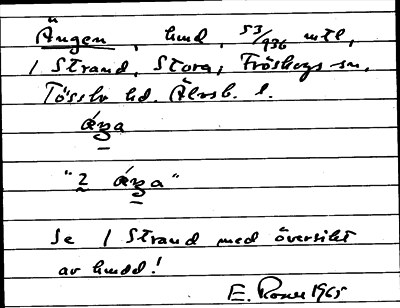 Ängen, hmd, 53/936 mtl,
1 Strand, Stora, Fröskogs sn,
Tössbo hd. Älvsb. l.
ǽŋa
"2 ǽŋa"
Se 1 Strand med översikt
av hmdd!
E. Rosen 1965